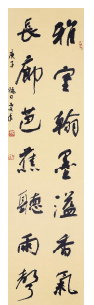 雅室翰墨溢香氣
長廊芭蕉聽雨聲
庚子